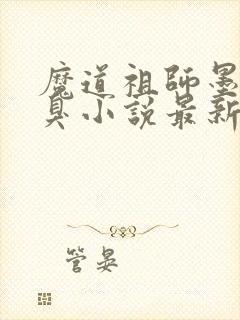 魔道祖師墨
臭小說最新
管晏